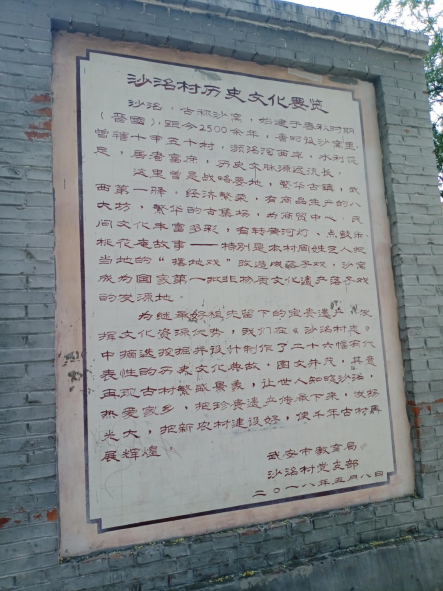 沙洺村历史文化展览
沙洺,古称沙窑,始建于春秋时期
(晋國),距今2500余年,唐时设沙窑里
曾辖十乡五十村,濒洺河西岸,水利充
足,居者富庶,历史文脉源远流长。
这里曾是战略要地,繁华古镇,武
西第一驿,经济繁荣,有商品生产的八
大坊,繁华的古集场,为商贸中心,民
间文化丰富多彩,有转黄河灯、点鼓术
桃花庵故事——特别是本村周姓艺人把
当地的“摆地戏”改造成落子戏,沙窑
成为国家第一批非物质文化遗产落子戏
的发源地。
为继承好祖先留下的宝贵遗产,发
挥文化资源优势,我们在《沙洺村志》
中摘选挖掘并设计制作了二十六幅有代
表性的历史文化典故,图文并茂,真是
再现古村繁盛景象,让世人知晓沙洺,
热爱家乡,把珍贵遗产传承下来,发扬
光大,把新农村建设好,使千年古村再
展辉煌
武安市教育局
沙洺村党支部
二〇一八年五月八日